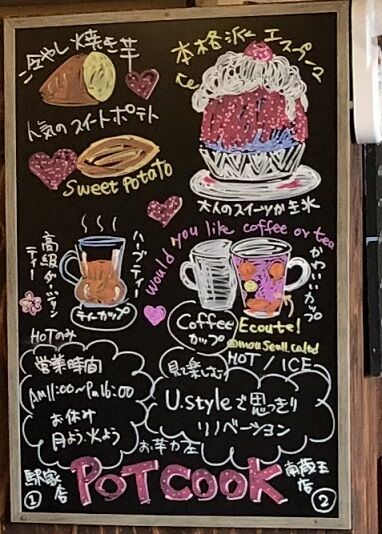 冷やし焼き芋
本格派エスプーマ
人気のスイートポテト
Sweet Potato
大人のスイーツかき氷
would you like coffee or tea
高級ダージリン
ティー
ハーブティー
ティーカップ
HOTのみ
かわいいカップ
Coffee
カップ
Ecoute!
HOT / ICE
営業時間
Am11:00〜Pm16:00
お休み
月よう.火よう
見て楽しむ
U.styleで思っきり
リノベーション
お芋カフェ
駅家店
①
POTCOOK
南蔵王店
②